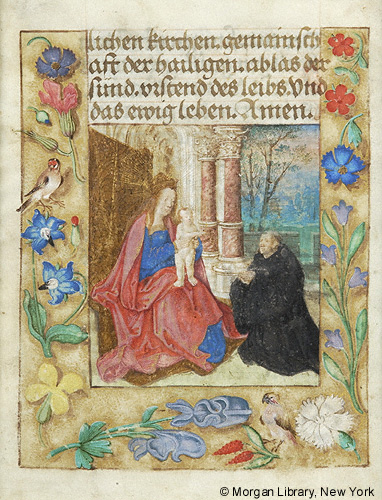 lichen kirchen. gemainsch
aft der hailigen. ablas der
sünd. vrstend des leibs. Vnd
das ewig leben. Amen.
© Morgan Library, New York